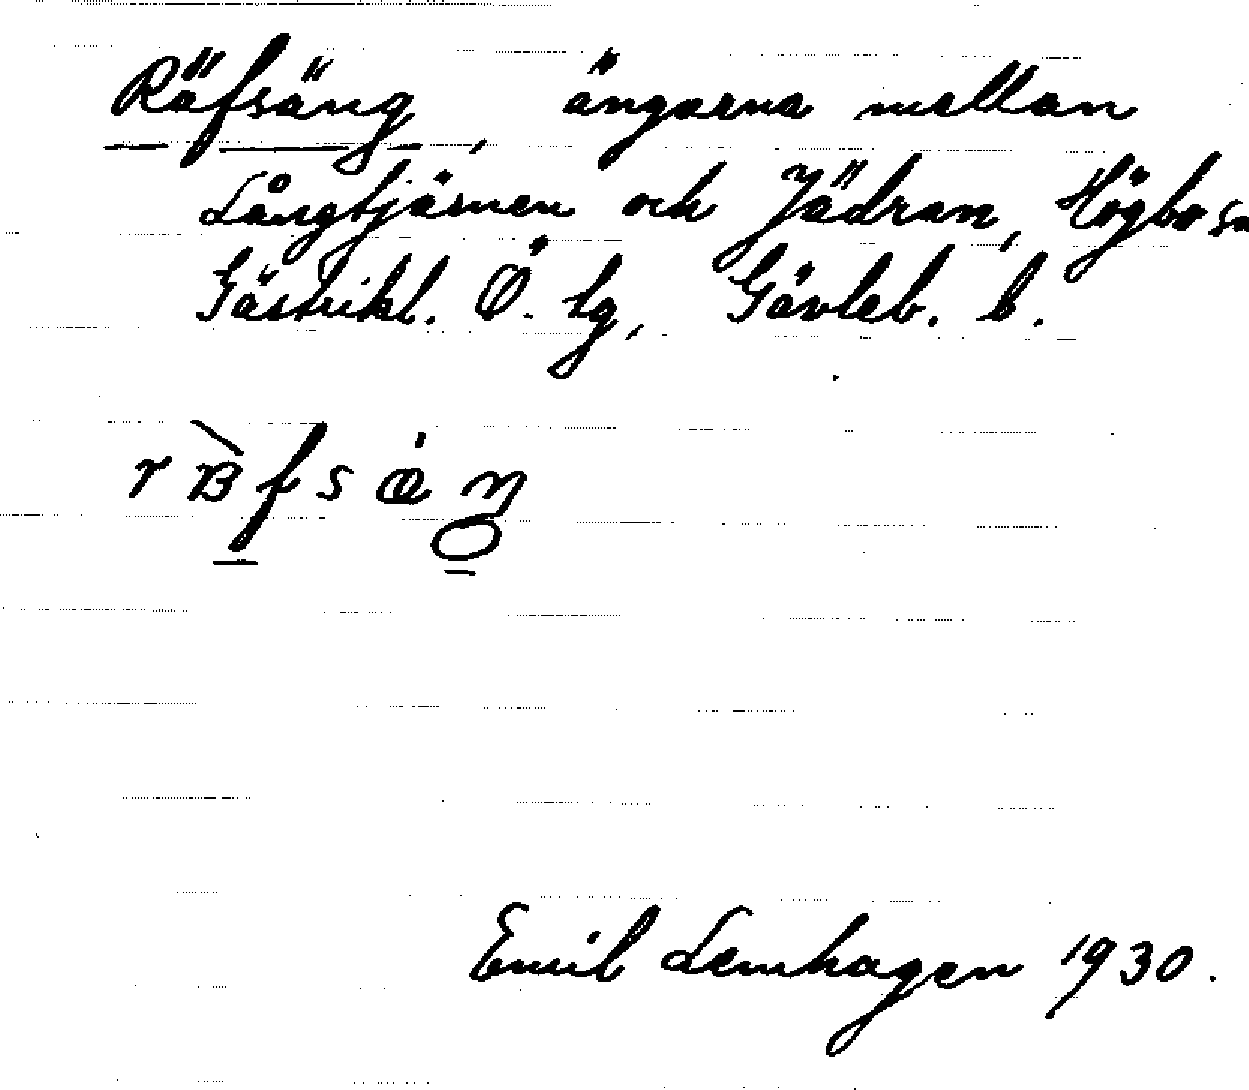 Räfsäng, ängarna mellan
Långtjärnen och Jädran, Högbo sn
Gästrikl. Ö. tg, Gävleb. l.
Emil Lemhagen 1930.